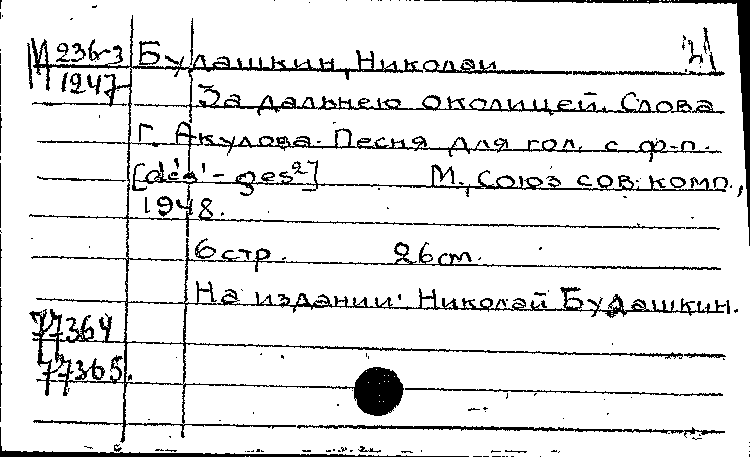 М 236-3 Будашкин, Николай
1947 За дальнею околицей. Слова
Г. Акулова. Песня для гол. с ф-п.
[des' - ges²] М., Союз сов. комп.,
1948.
6 стр. 26 cm.
На издании: Николай Будашкин.
77364
77365.